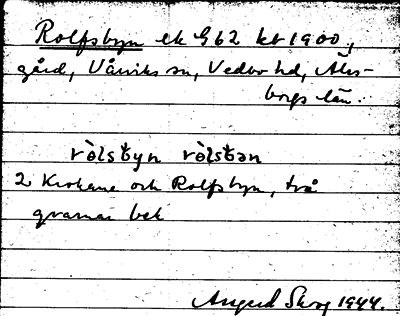 Rolfsbyn ek 962 kt 1900,
gård, Vårviks sn, Vedbo hd, Älvs-
borgs län.
ròlsbyn ròlsbən
2 Krokane och Rolfsbyn, två
grannar bek
Skog 1944.